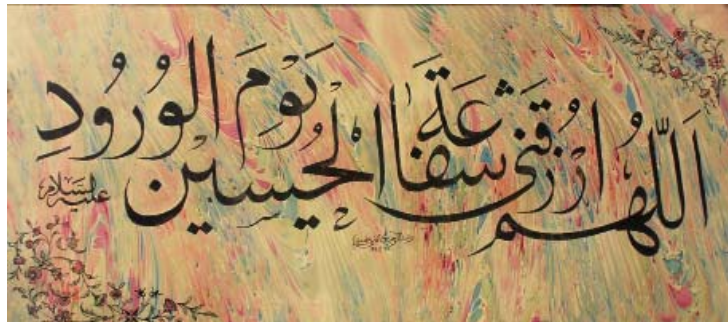 اَللّهُمَّ ارْزُقْنی شَفاعَةَ الْحُسَین یَوْمَ الْوُرُودِ
علیه‌السلام